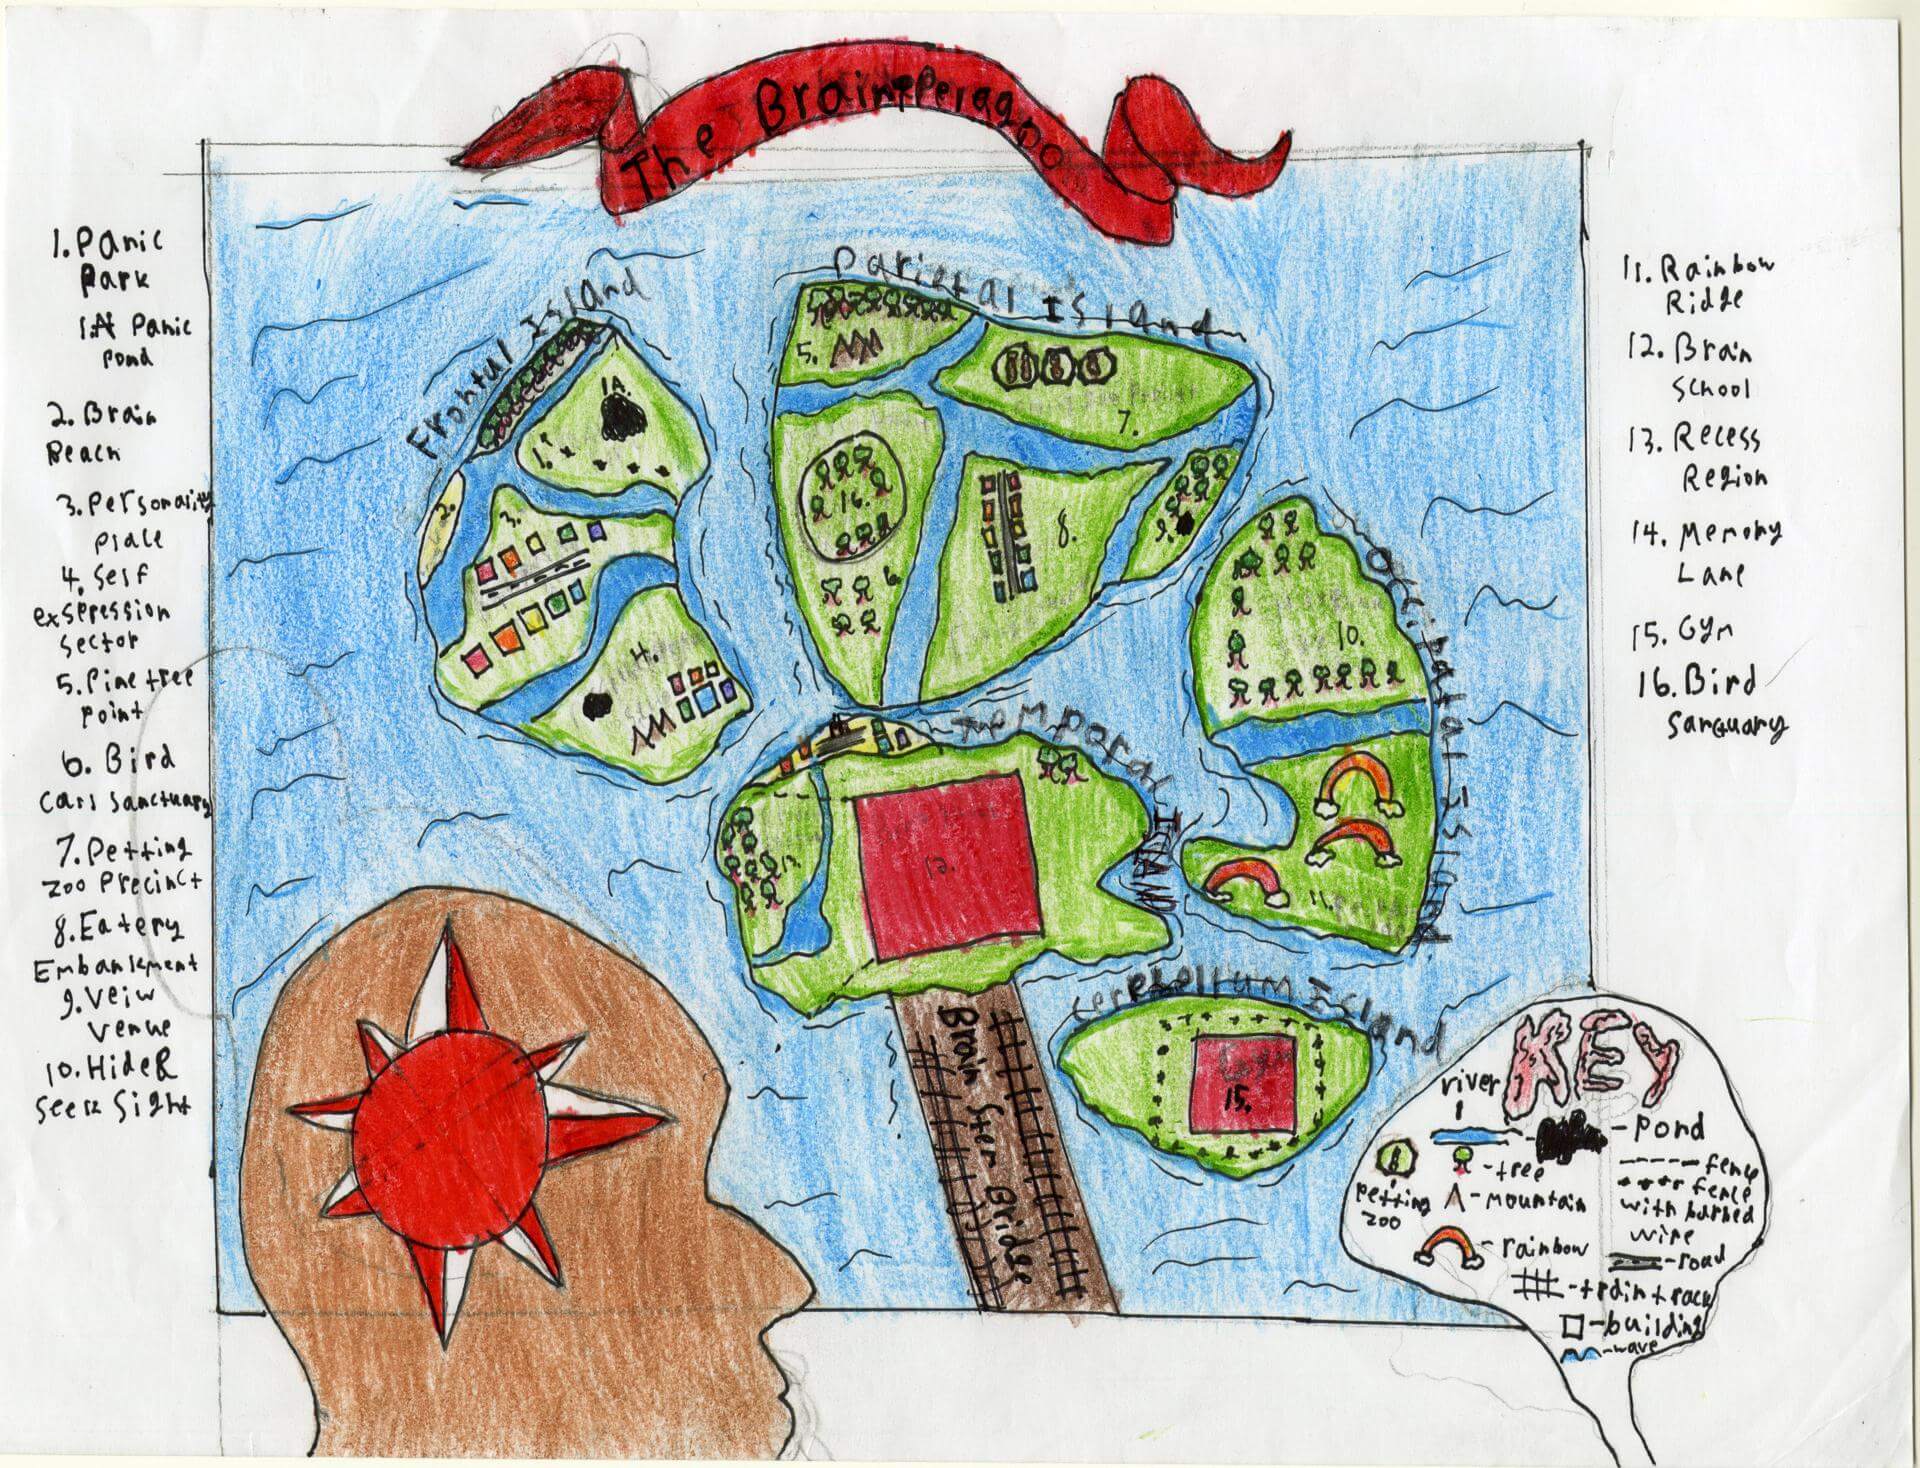 The Brainepelagoo
1. Panic
Park
1.A Panic
pond
2. Brain
Beach
3. Personality
Place
4. Self
exspression
Sector
5. Pine tree
point
6. Bird
Call Sanctuary
7. Petting
zoo Precinct
8. Eatery
Embankment
9. Veiw
Venue
10. Hide &
Seek Sight
11. Rainbow
Ridge
12. Brain
School
13. Recess
Region
14. Memory
Lane
15. Gym
16. Bird
Sanctuary
Frontal Island
1A.
1.
2.
3.
4.
Parietal Island
5.
7.
16.
8.
9.
6.
Occipatal Island
10.
11.
Temporal Island
13.
12.
Brain Stem Bridge
Cerebellrum Island
Gym
15.
KEY
river
pond
petting
zoo
tree
mountain
rainbow
train track
building
wave
fence
fence
with barbed
wire
road